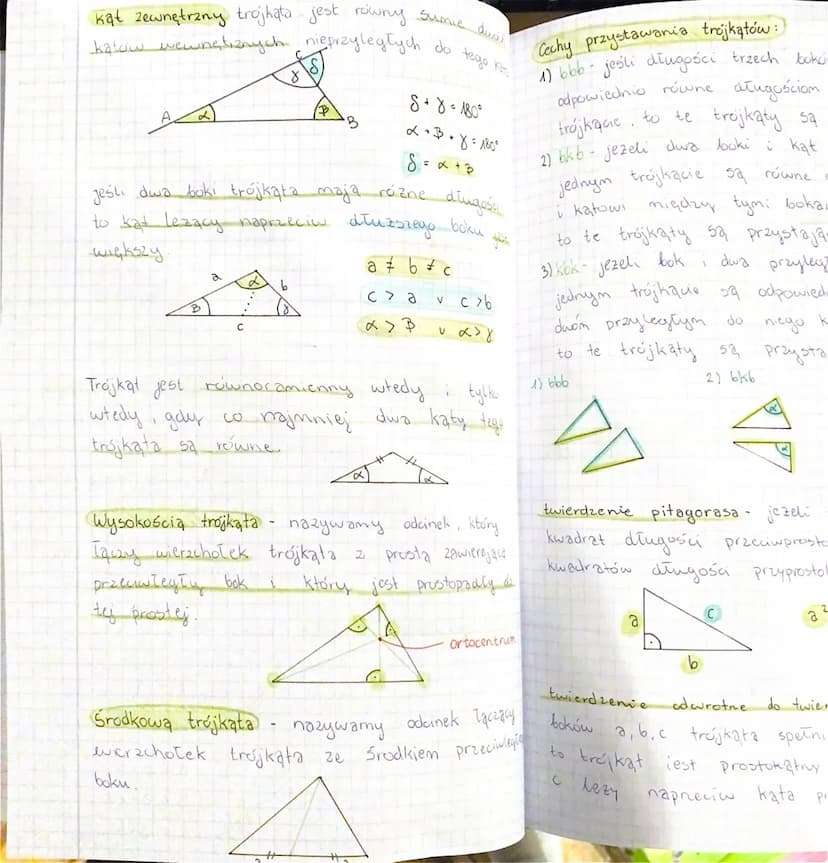 kąt zewnętrzny trójkąta jest równy sumie dwó
kątów wewnętrznych nieprzyległych do tego
C
δ
γ
A
α
β
B
δ + γ = 180°
α + β + γ = 180°
δ = α + β
jeśli dwa boki trójkąta mają różne długości
to kąt leżący naprzeciw dłuższego boku jest
większy
a
α
b
β
γ
c
a ≠ b ≠ c
c > a v c > b
α > β v α > γ
Trójkąt jest równoramienny wtedy i tylko
wtedy, gdy co najmniej dwa kąty tego
trójkąta są równe.
α
α
Wysokością trójkąta - nazywamy odcinek, który
łączy wierzchołek trójkąta z prostą zawierając
przeciwległy bok i który jest prostopadły do
tej prostej.
ortocentrum
Środkową trójkąta - nazywamy odcinek łączący
wierzchołek trójkąta ze środkiem przeciwległe
boku.
Cechy przystawania trójkątów:
1) bbb - jeśli długości trzech bokó
odpowiednio równe długościom
trójkącie, to te trójkąty są
2) bkb - jeżeli dwa boki i kąt
jednym trójkącie są równe
i kątowi między tymi boka
to te trójkąty są przystają
3) kbk - jeżeli bok i dwa przyleg
jednym trójkącie są odpowied
dwóm przyległym do niego k
to te trójkąty są przysta
1) bbb
2) bkb
α
α
twierdzenie pitagorasa - jeżeli
kwadrat długości przeciwprosto
kwadratów długości przyprostok
a
c
b
a²
twierdzenie odwrotne do twier
boków a, b, c trójkąta spełni
to trójkąt jest prostokątny
c leży naprzeciw kąta pr